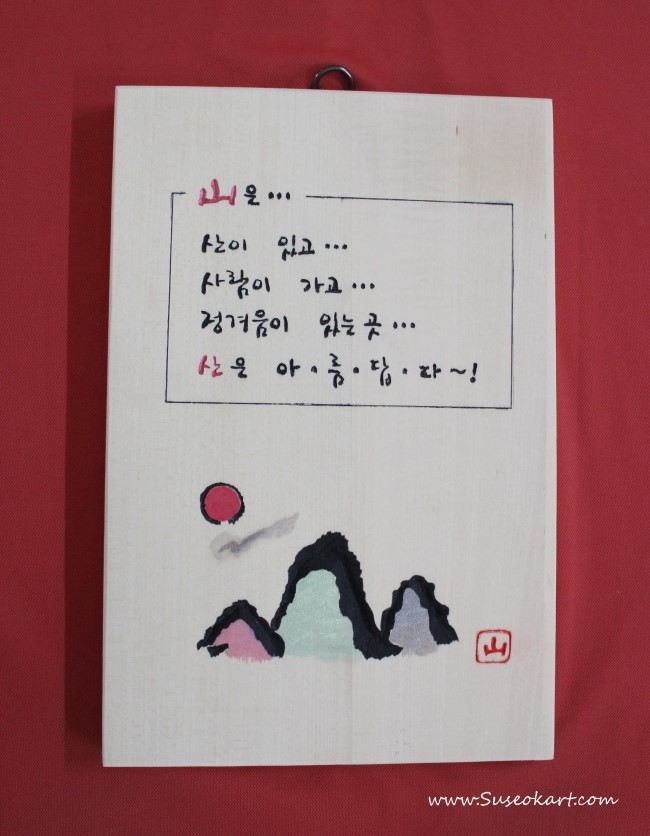 山은...
산이 있고...
사람이 가고...
정겨움이 있는 곳...
산은 아·름·답·다~!
山
www.Suseokart.com